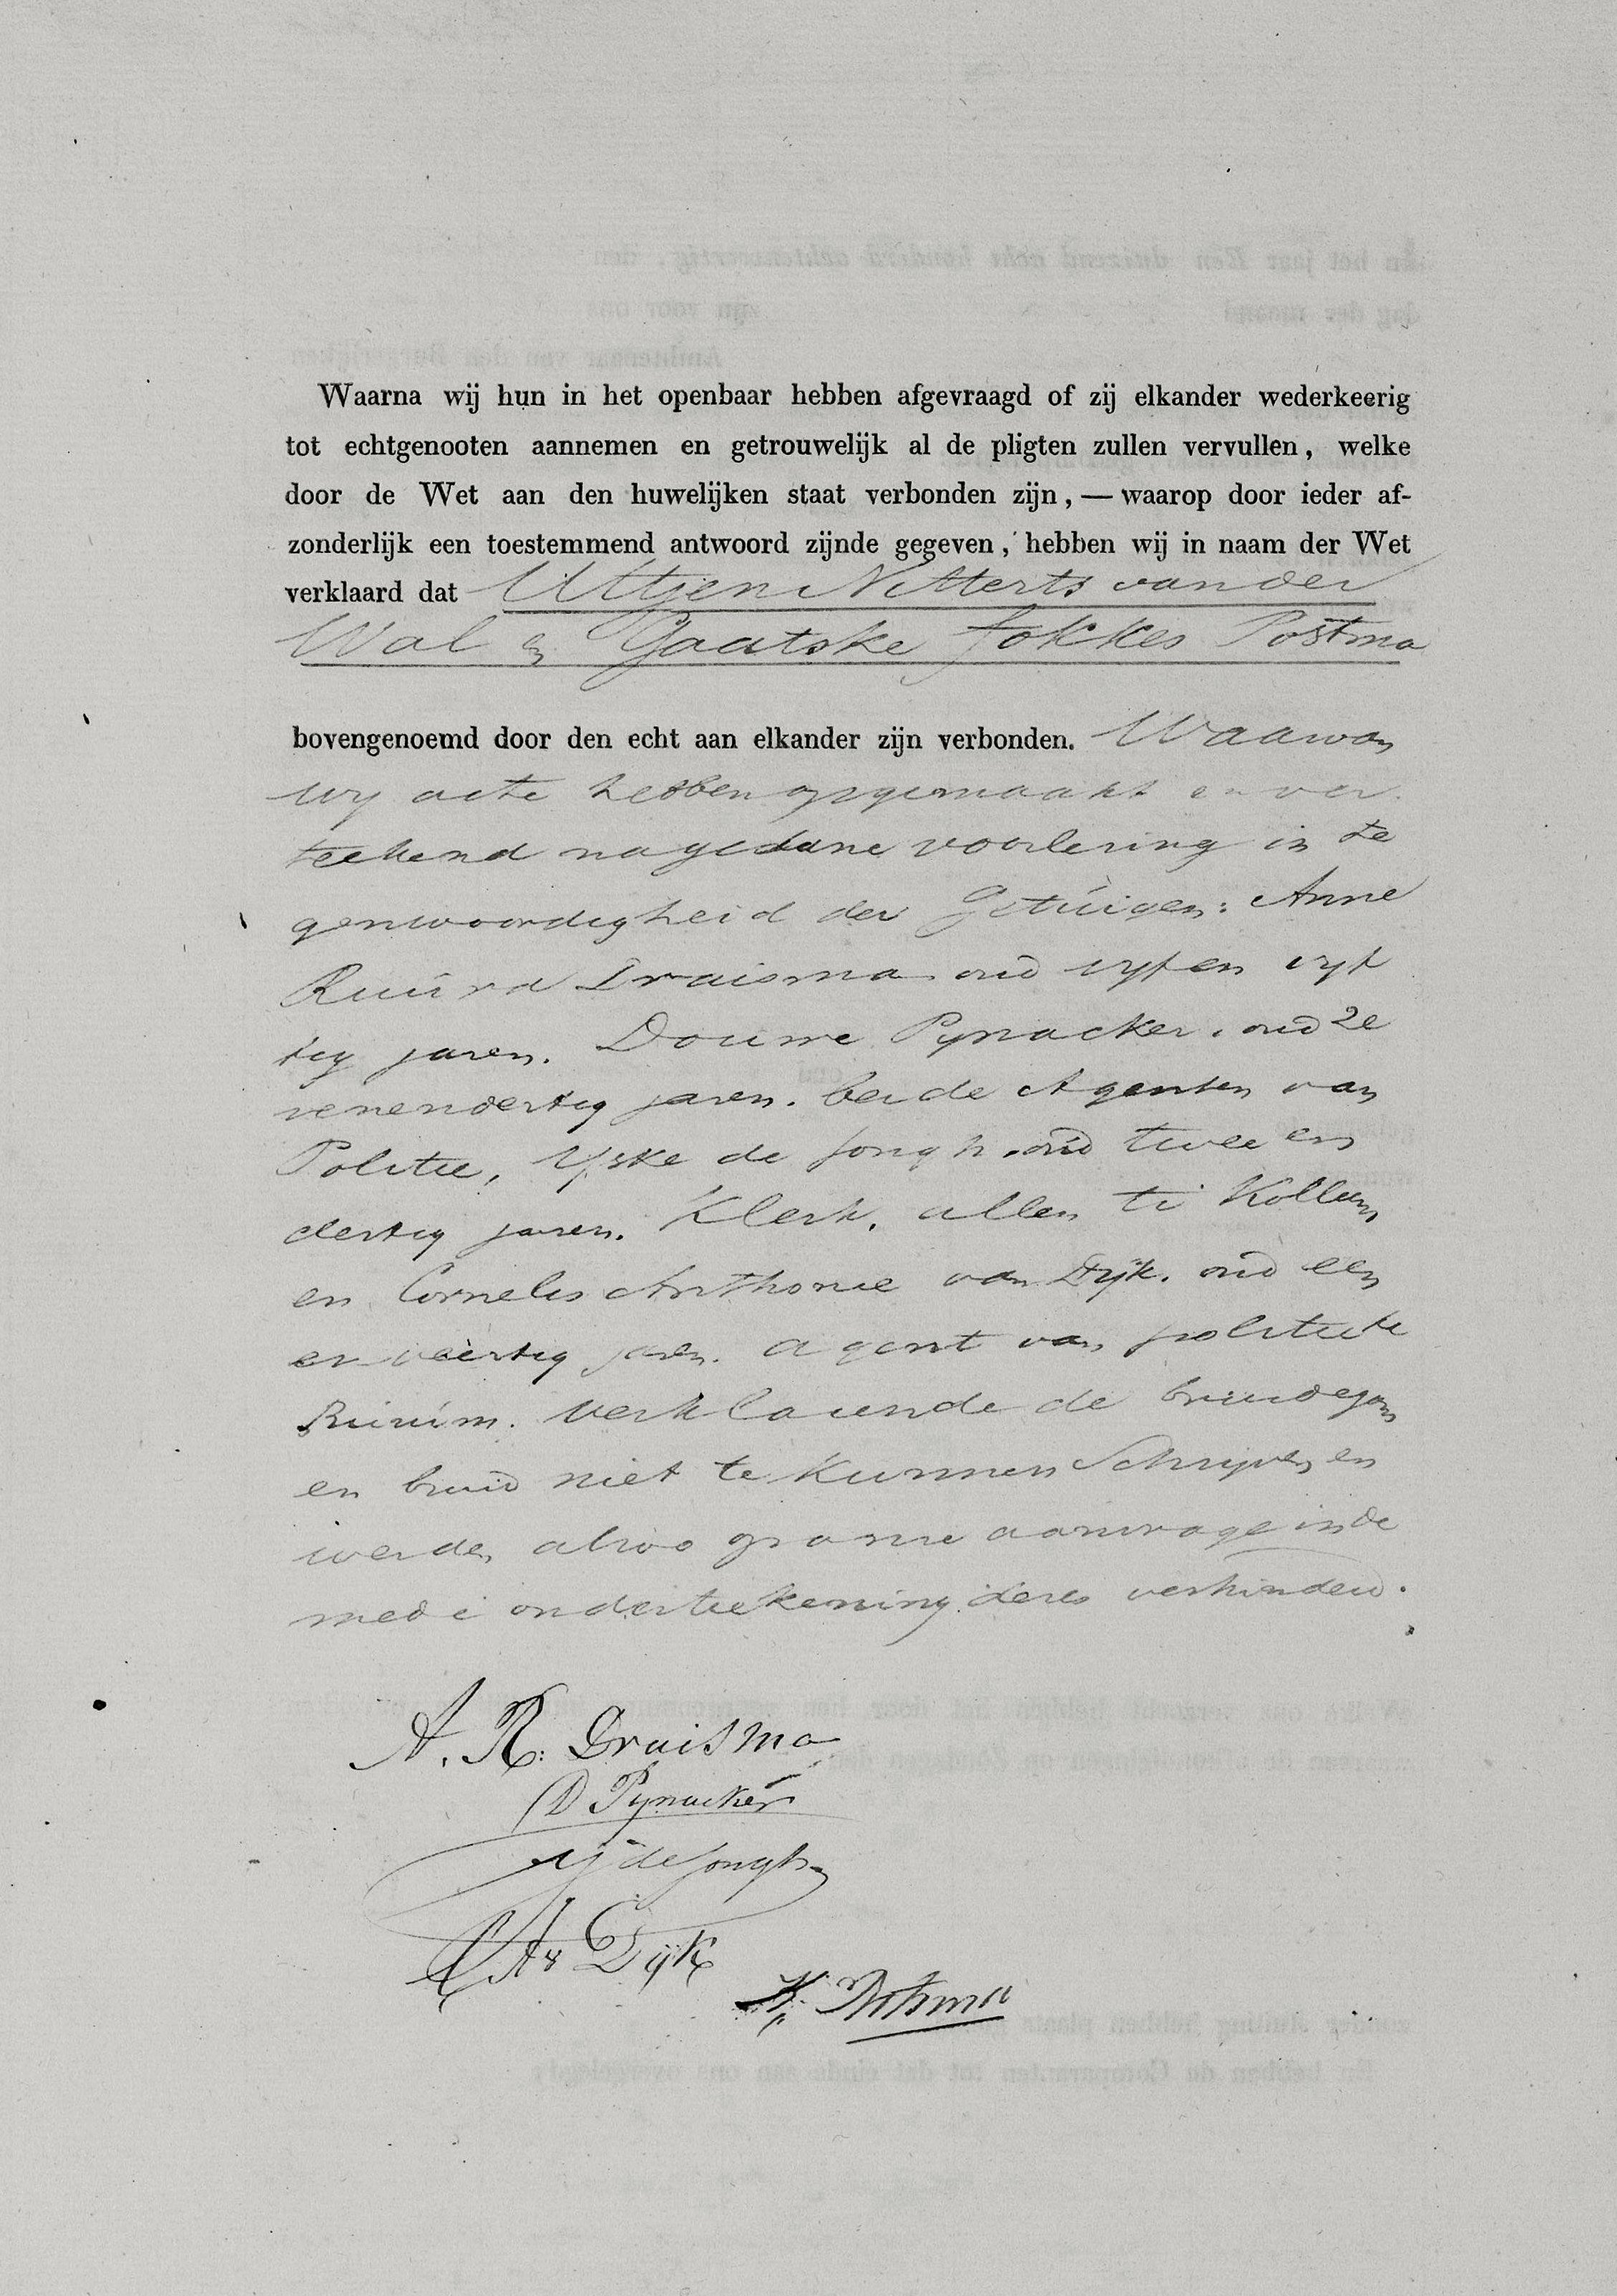 Waarna wij hun in het openbaar hebben afgevraagd of zij elkander wederkeerig
tot echtgenooten aannemen en getrouwelijk al de pligten zullen vervullen, welke
door de Wet aan den huwelijken staat verbonden zijn, — waarop door ieder af-
zonderlijk een toestemmend antwoord zijnde gegeven, hebben wij in naam der Wet
verklaard dat Uttjen Nitterts van der
Wal en Tjaatske Fokkes Postma
bovengenoemd door den echt aan elkander zijn verbonden. Waarvan
wij acte hebben opgemaakt en ver
teekend na gedane voorlezing in te
genwoordigheid der Getuigen: Anne
Ruurd Druisma oud vyf en vyf
tig jaren. Douwe Pynacker. oud ze
venendertig jaren. beide Agenten van
Politie, Ypke de Jongh. oud twee en
dertig jaren. Klerk. allen te Kollum
en Cornelis Anthonie van Dijk. oud een
en veertig jaren. agent van politie te
Burum. verklarende de bruidegom
en bruid niet te kunnen Schrijven en
werden alzoo op onze aanvrage in de
mede onderteekening dezes verhinderd.
A. R. Druisma
D Pynacker
Y de Jongh
C A v Dijk